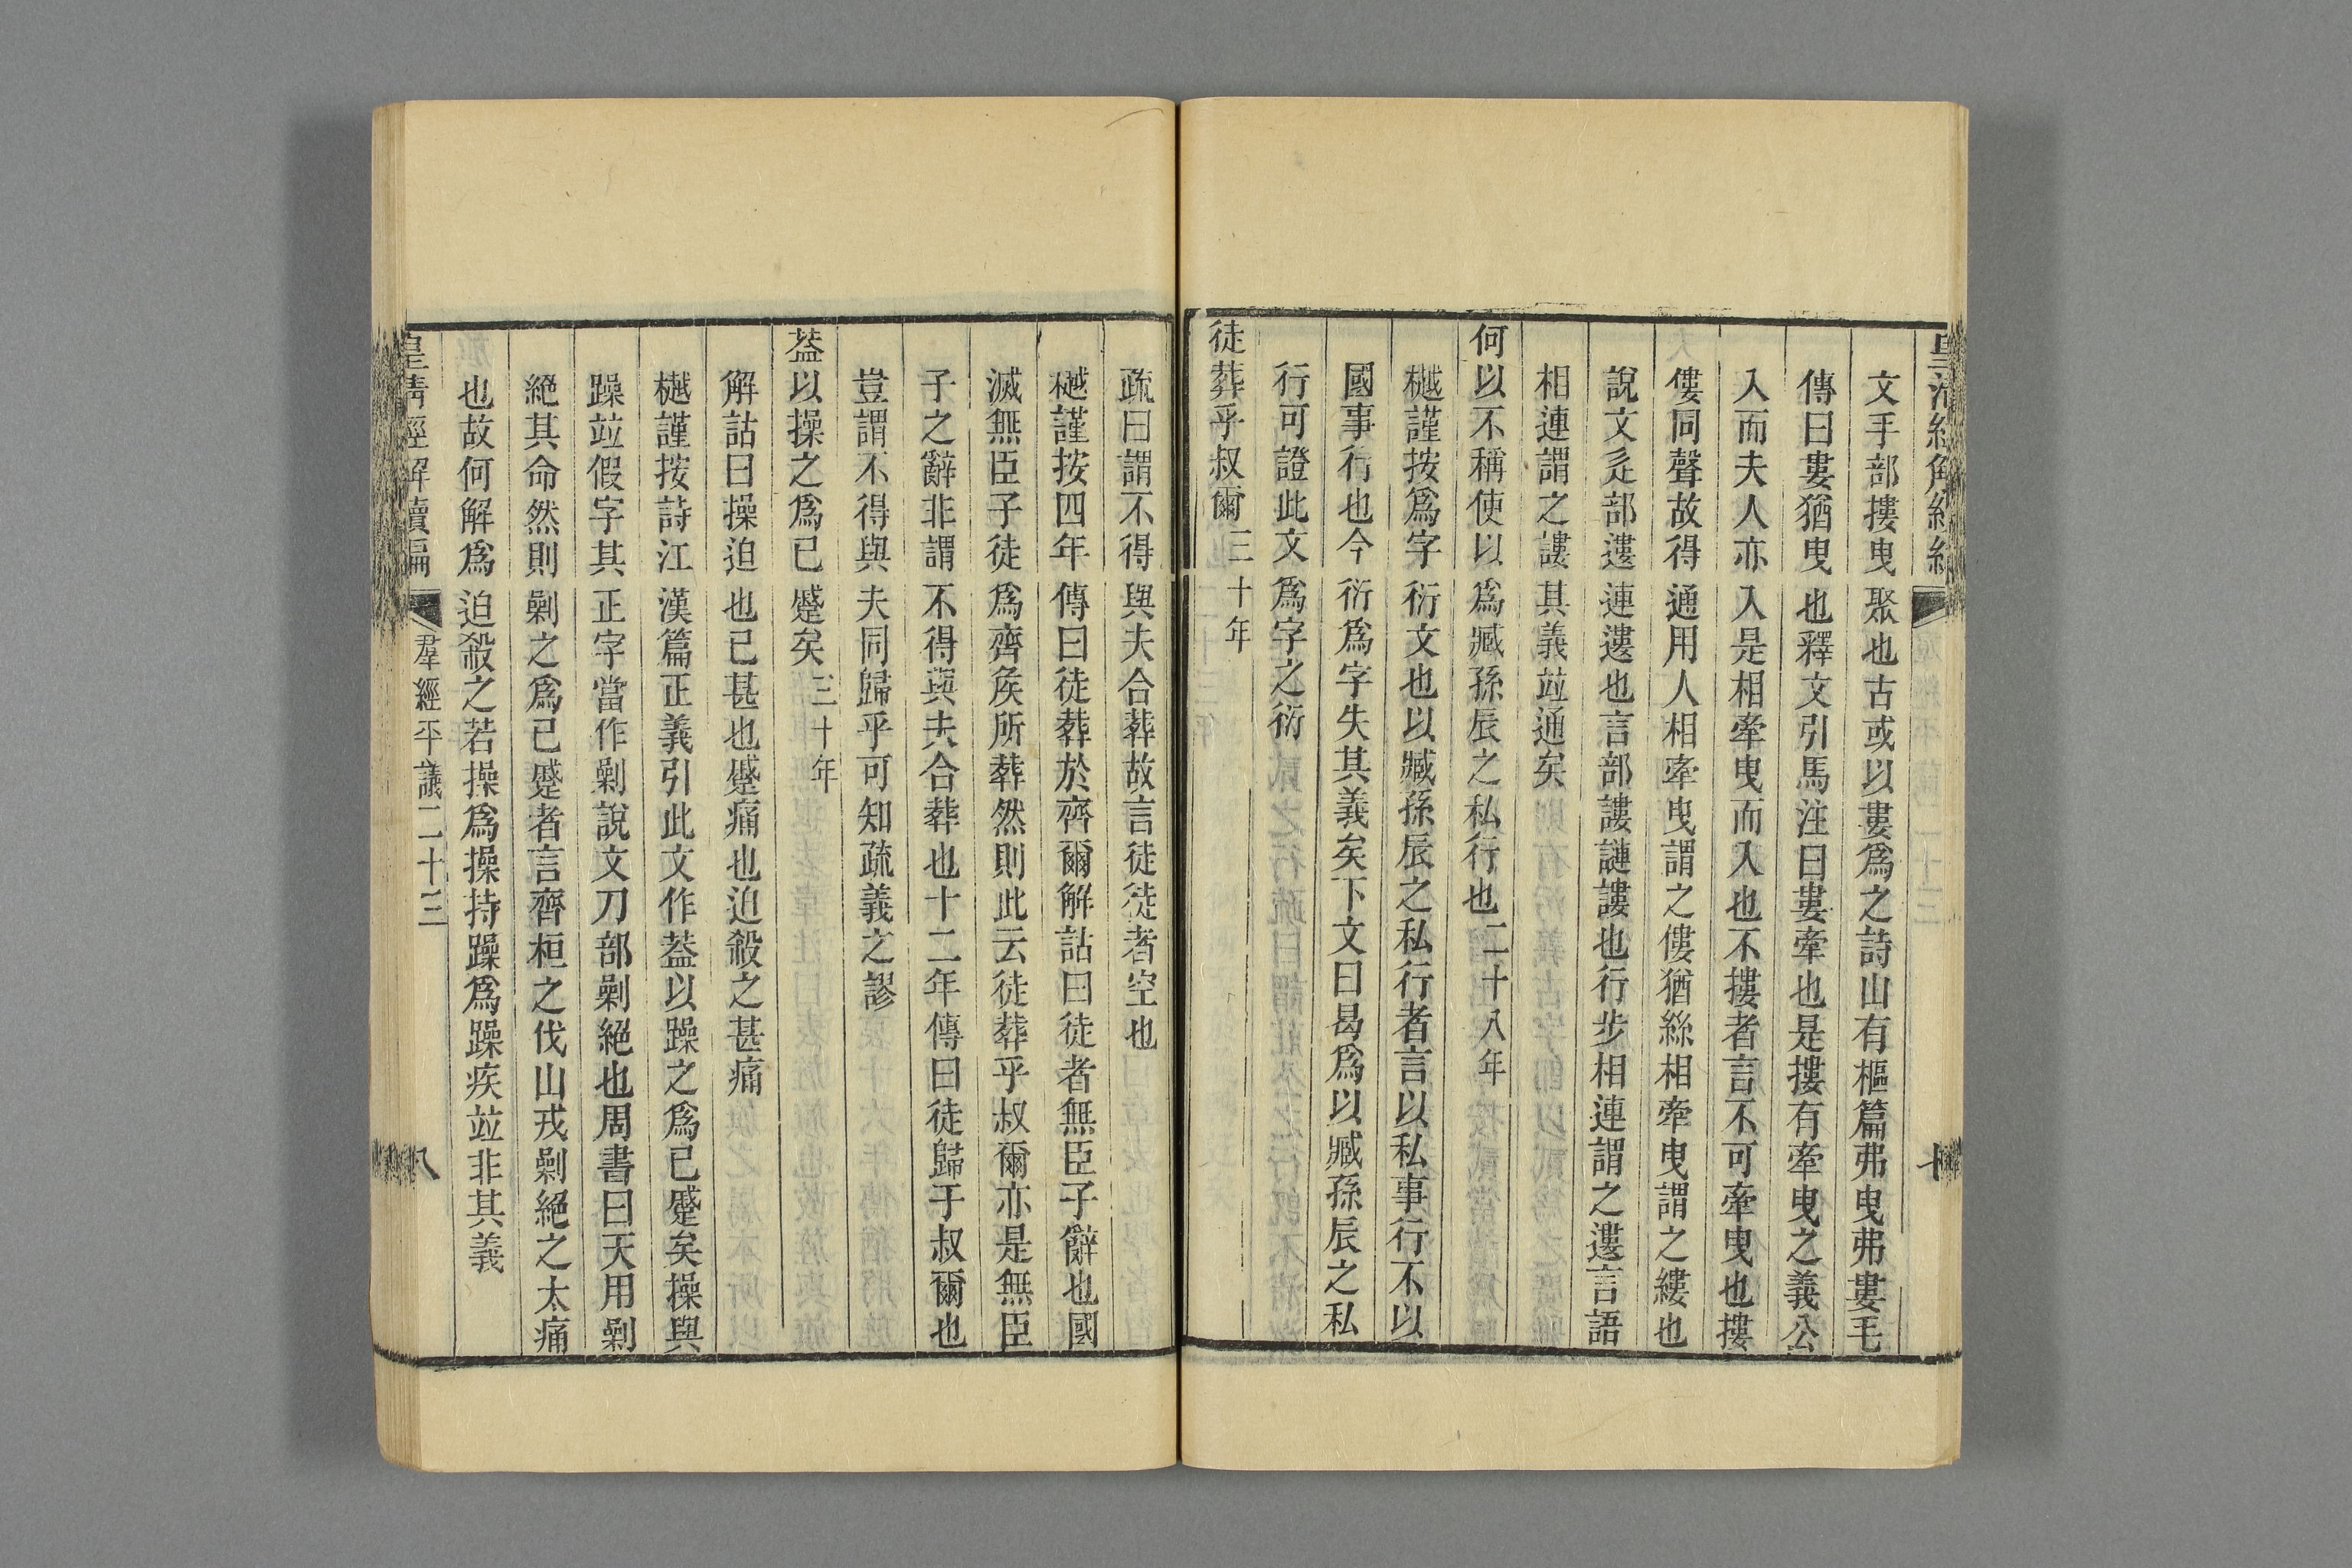 文手部摟曳聚也古或以婁爲之詩山有樞篇弗曳弗婁毛
傳曰婁猶曳也釋文引馬注曰婁牽也是摟有牽曳之義公
入而夫人亦入是相牽曳而入也不摟者言不可牽曳也摟
僂同聲故得通用人相牽曳謂之僂猶絲相牽曳謂之縷也
說文辵部遱連遱也言部謱謰謱也行步相連謂之遱言語
相連謂之謱其義竝通矣
何以不稱使以爲臧孫辰之私行也二十八年
樾謹按爲字衍文也以臧孫辰之私行者言以私事行不以
國事行也今衍爲字失其義矣下文曰曷爲以臧孫辰之私
行可證此文爲字之衍
徒葬乎叔爾三十年
疏曰謂不得與夫合葬故言徒徒者空也
樾謹按四年傳曰徒葬於齊爾解詁曰徒者無臣子辭也國
滅無臣子徒爲齊矦所葬然則此云徒葬乎叔爾亦是無臣
子之辭非謂不得與夫合葬也十二年傳曰徒歸于叔爾也
豈謂不得與夫同歸乎可知疏義之謬
葢以操之爲已蹙矣三十年
解詁曰操迫也已甚也蹙痛也迫殺之甚痛
樾謹按詩江漢篇正義引此文作葢以躁之爲已蹙矣操與
躁竝假字其正字當作剿說文刀部剿絕也周書曰天用剿
絕其命然則剿之爲已蹙者言齊桓之伐山戎剿絕之太痛
也故何解爲迫殺之若操爲操持躁爲躁疾竝非其義
皇清經解續編 羣經平議二十三 八